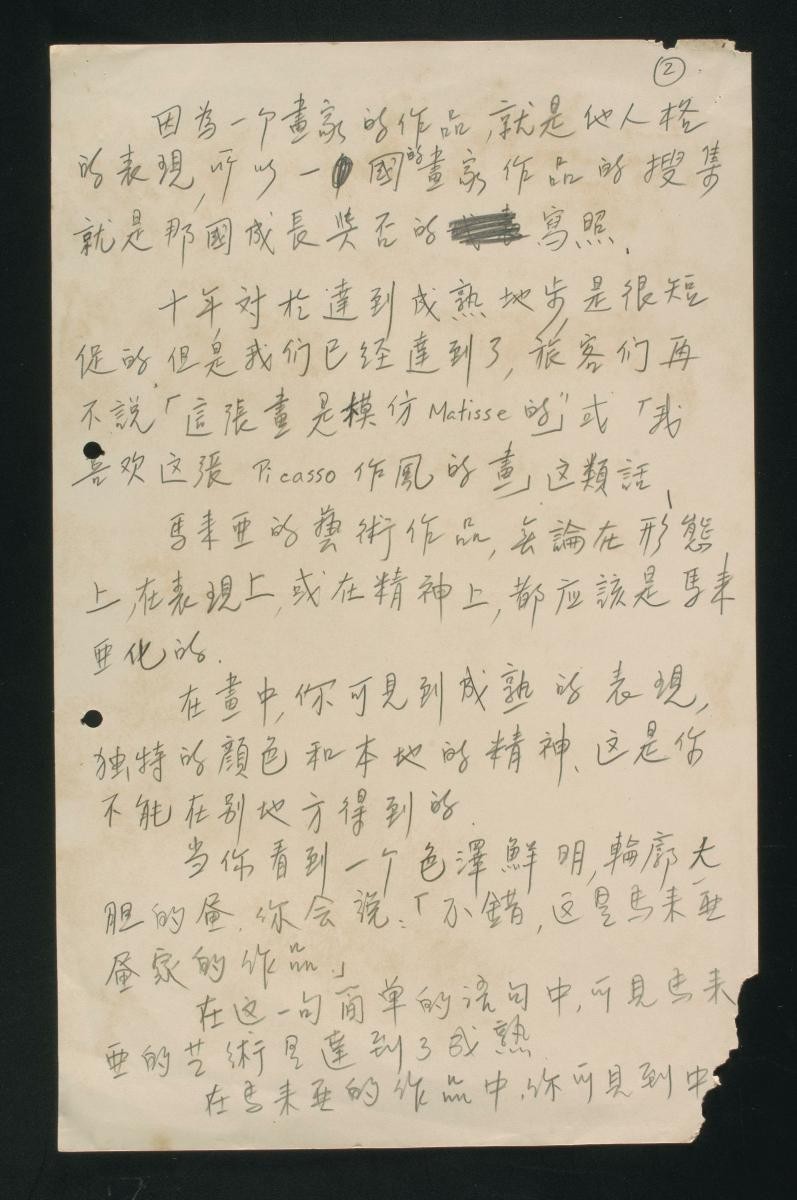 ②
因為一个畫家的作品,就是他人格
的表現,所以一國的畫家作品的搜集
就是那國成長與否的寫照.
十年对於達到成熟地步,是很短
促的,但是我们已经達到了,旅客们再
不說「這張畫是模仿Matisse的」或「我
喜欢这張Picasso作風的畫」这類話、
馬来亜的藝術作品,無論在形態
上,在表現上,或在精神上,都应該是馬来
亜化的.
在畫中,你可見到成熟的表現,
独特的顔色和本地的精神、这是你
不能在别地方得到的.
当你看到一个色澤鮮明,輪廓大
胆的畫.你会説:「不錯,这是馬来亜
畫家的作品.」
在这一句简单的语句中,可見馬来
亜的芸術是達到了成熟
在馬来亜的作品中.你可見到中